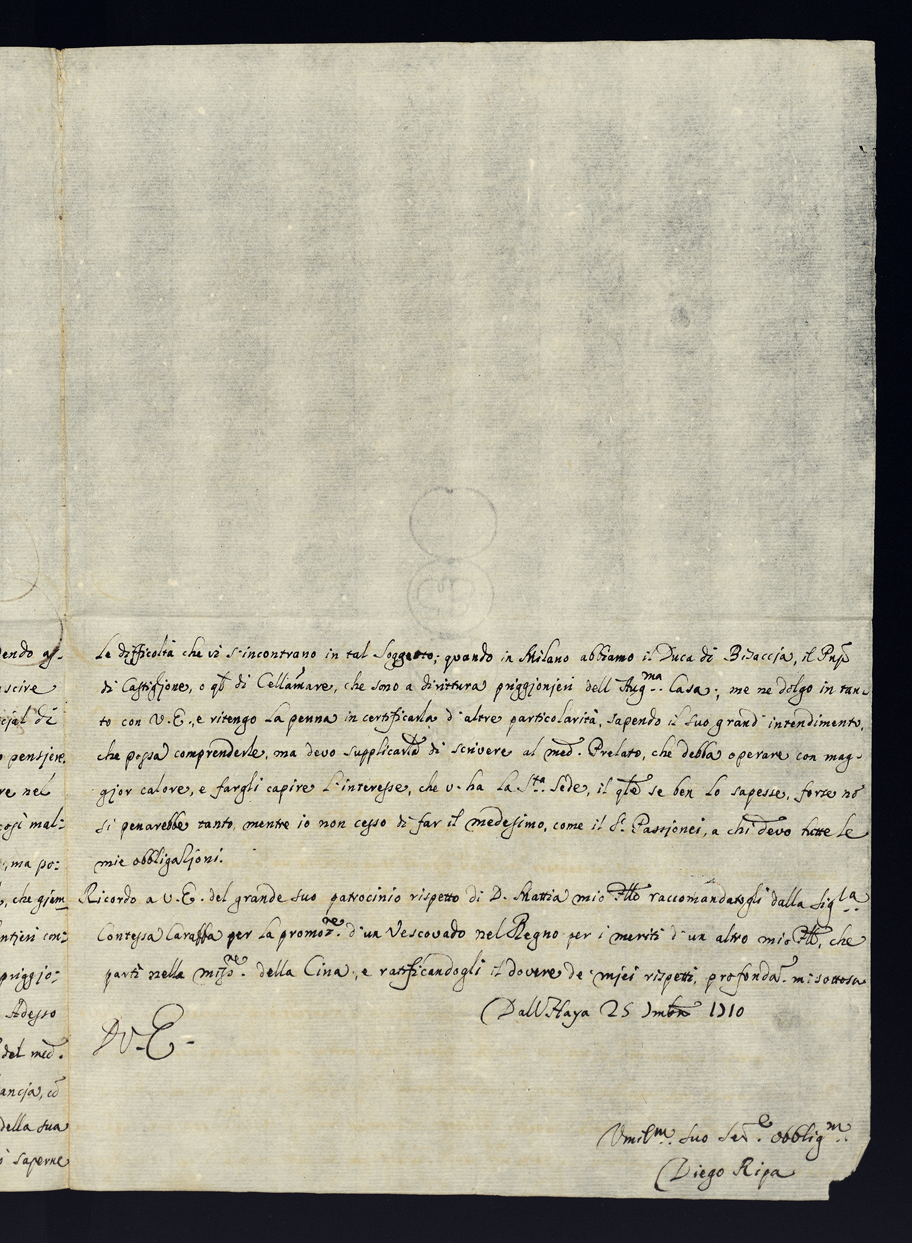 dendo al-
uscire
cial di
o pensjere
re nel
così mal=
, ma po=
, che gjem
ntieri con=
priggjo=
Adesso
del med.
ancja, cō
della sua
i saperne
le difficoltà che vi s'incontrano in tal Soggetto; quando in Milano abbiamo il Duca di Bisaccja, il Pnṕe
di Castigljone, o ql̄ di Cellamare, che sono a dirittura priggjonjeri dell'Aug.ma Casa; me ne dolgo in tan-
to con V.E., e ritengo la penna in certificarla d'altre particolarità, sapendo il suo grand'intendimento,
che possa comprenderle, ma devo supplicarla di scrivere al med. Prelato, che debba operare con mag-
gjor calore, e fargli capire l'interesse, che v'ha la S.ta Sede, il qle se ben lo sapesse, forse nō
si penarebbe tanto, mentre io non cesso di far il medesimo, come il Sr. Passjonei, a chi devo tutte le
mie obbligaZjoni.
Ricordo a V.E. del grande suo patrocinio rispetto di D. Mattia mio Fr̄llo raccomandatogli dalla Sig.la
Contessa Caraffa per la promoz.ne d'un Vescovado nel Regno per i meriti d'un altro mio Fr̄llo, che
partì nella miss.ne della Cina, e ratificandogli il dovere de' mjei rispetti, profonda.te mi sottosc
Dall'Haya 25 9mbre 1710
D V.E.
Umil.m suo Ser.e obblig.m
Diego Ripa